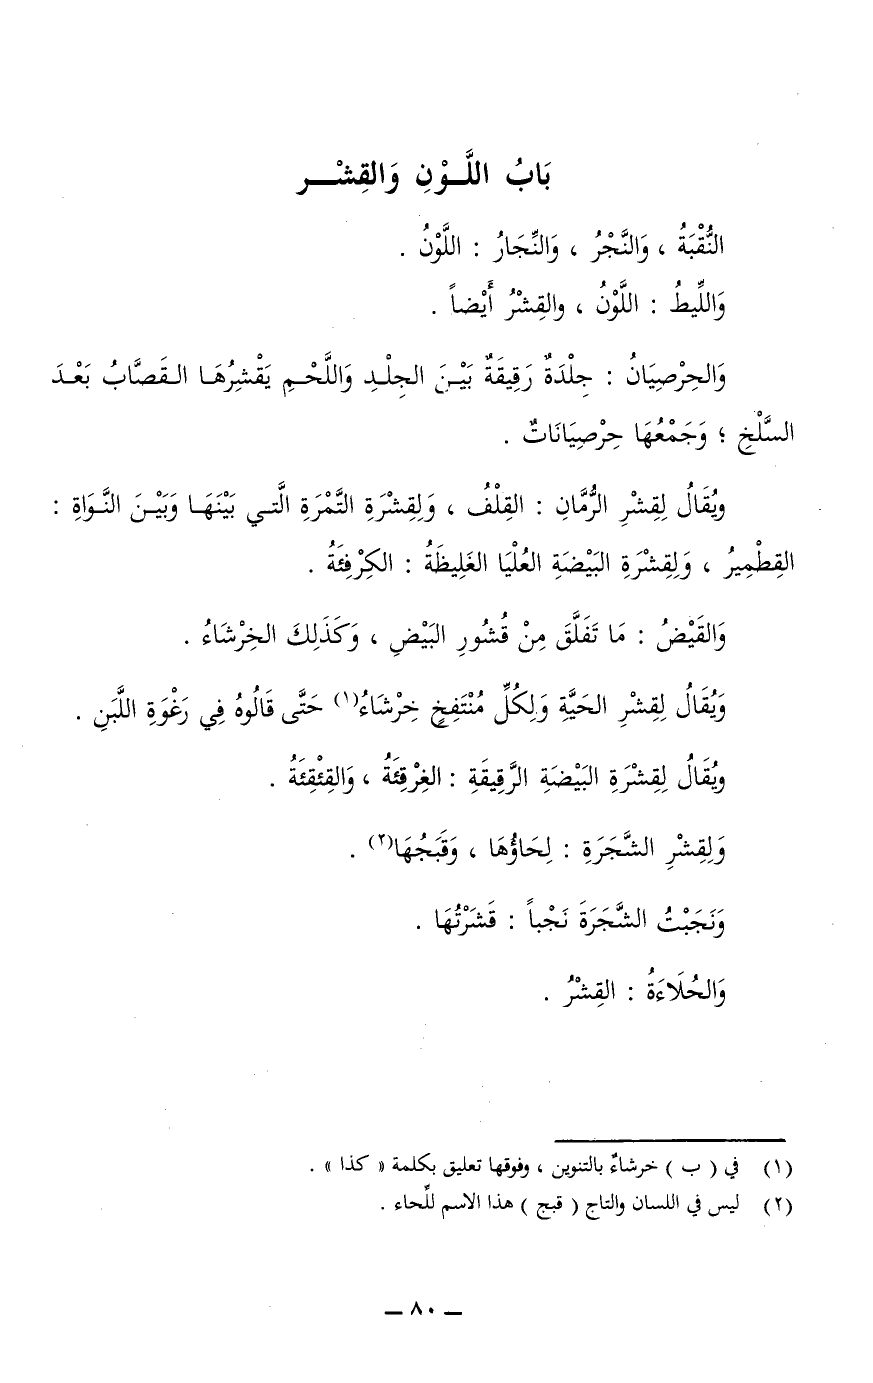 بَابُ اللَّـوْنِ وَالقِشْـــرِ
النُّقْبَةُ ، وَالنَّجْرُ ، وَالنِّجَارُ : اللَّوْنُ .
وَاللِّيطُ : اللَّوْنُ ، والقِشْرُ أَيْضاً .
وَالحِرْصِيَانُ : جِلْدَةٌ رَقِيقَةٌ بَيْـنَ الجِلْـدِ وَاللَّحْـمِ يَقْشِرُهَـا القَصَّابُ بَعْـدَ
السَّلْخِ ؛ وَجَمْعُهَا حِرْصِيَانَاتٌ .
ويُقَالُ لِقِشْرِ الرُّمَّانِ : القِلْفُ ، وَلِقِشْرَةِ التَّمْرَةِ الَّتـي بَيْنَهَـا وَبَيْـنَ النَّـوَاةِ :
القِطْمِيرُ ، وَلِقِشْرَةِ البَيْضَةِ العُلْيَا الغَلِيظَةُ : الكِرْفِئَةُ .
وَالقَيْضُ : مَا تَفَلَّقَ مِنْ قُشُورِ البَيْضِ ، وَكَذَلِكَ الخِرْشَاءُ .
وَيُقَالُ لِقِشْرِ الحَيَّةِ وَلِكُلِّ مُنْتَفِخٍ خِرْشَاءُ(١) حَتَّى قَالُوهُ فِي رَغْوَةِ اللَّبَنِ .
ويُقَالُ لِقِشْرَةِ البَيْضَةِ الرَّقِيقَةِ : الغِرْقِئَةُ ، وَالقِئْقِئَةُ .
وَلِقِشْرِ الشَّجَرَةِ : لِحَاؤُهَا ، وَقَبَجُهَا(٢) .
وَنَجَبْتُ الشَّجَرَةَ نَجْباً : قَشَرْتُهَا .
وَالحُلَاءَةُ : القِشْرُ .
(١) في ( ب ) خرشاءٌ بالتنوين ، وفوقها تعليق بكلمة « كذا » .
(٢) ليس في اللسان والتاج ( قبج ) هذا الاسم للِّحاء .
ــ ٨٠ ــ